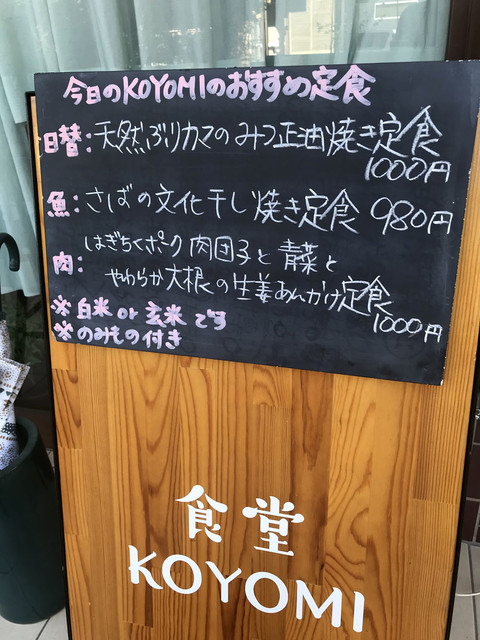 今日のKOYOMIのおすすめ定食
日替:天然ぶりカマのみつ正油焼き定食
1000円
魚:さばの文化干し焼き定食 980円
肉:はぎちくポーク肉団子と青菜と
やわらか大根の生姜あんかけ定食
1000円
※白米or玄米です
※のみもの付き
食堂
KOYOMI